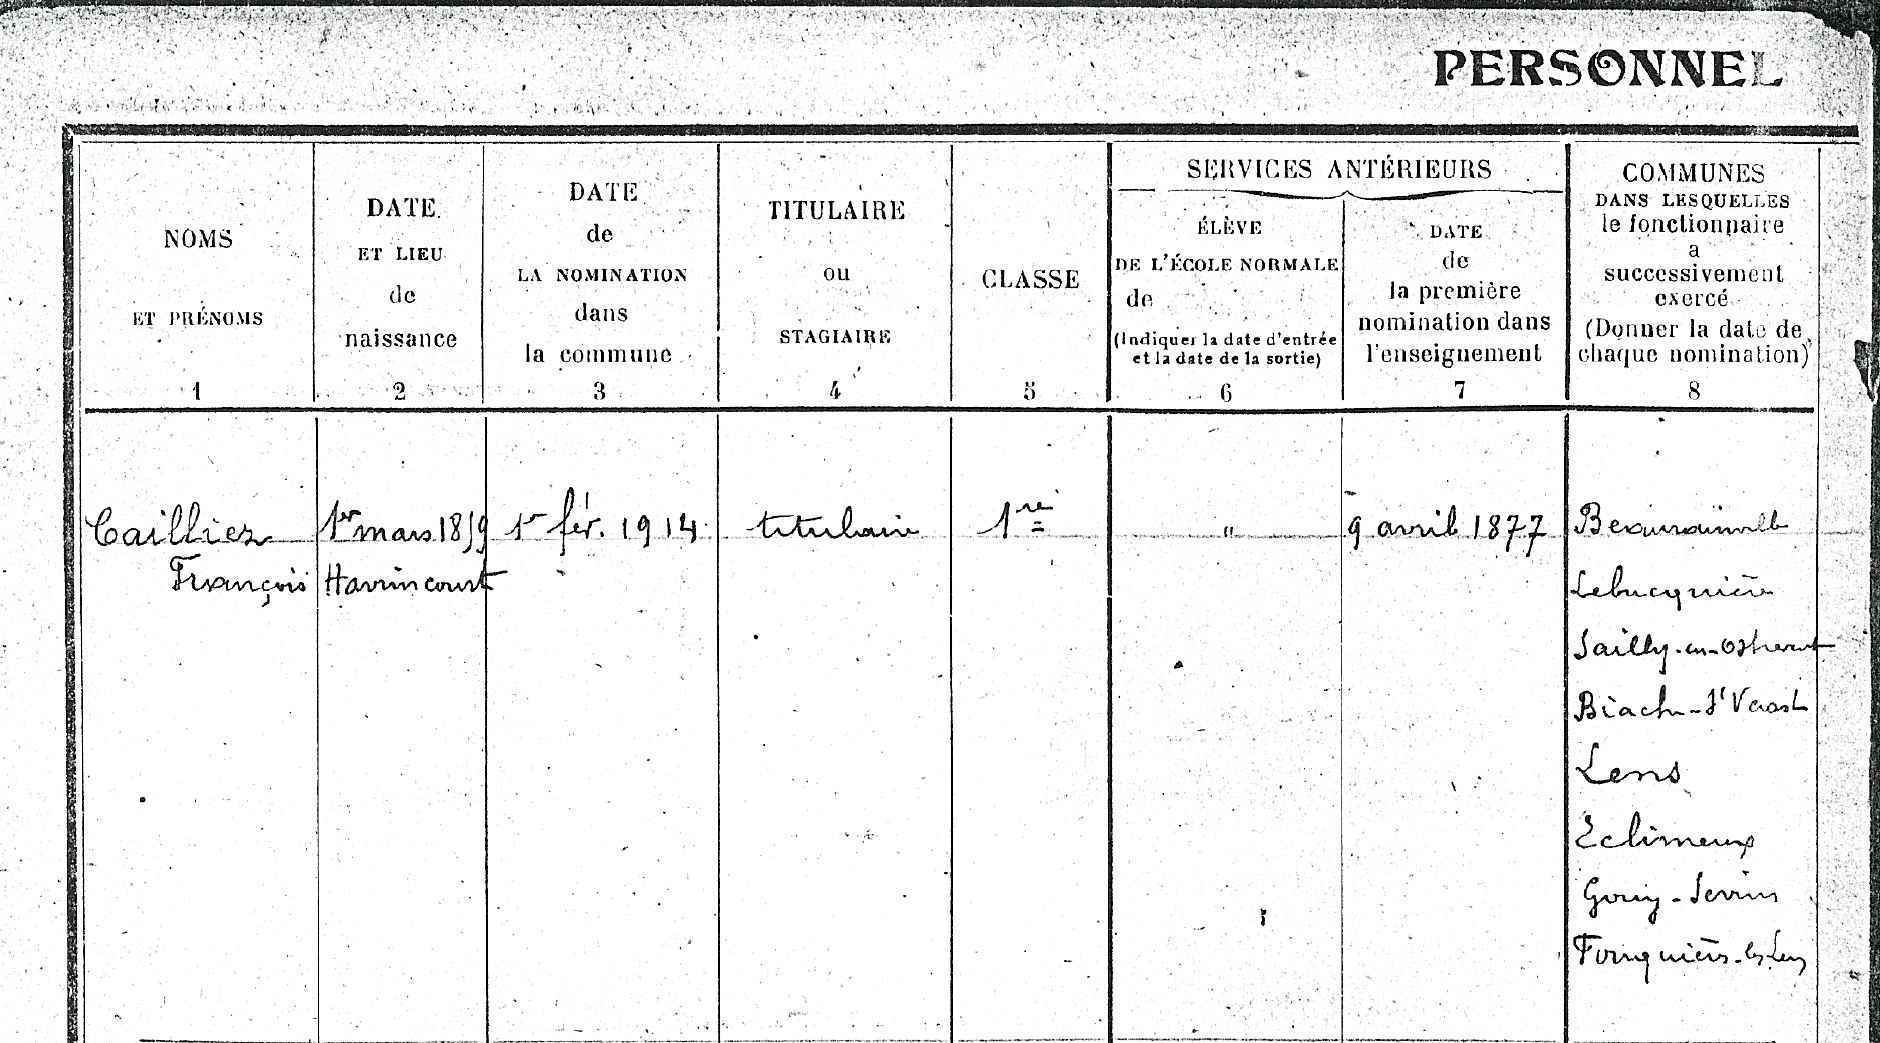 PERSONNEL
NOMS
ET PRÉNOMS
1
DATE
ET LIEU
de
naissance
2
DATE
de
LA NOMINATION
dans
la commune
3
TITULAIRE
ou
STAGIAIRE
4
CLASSE
5
SERVICES ANTÉRIEURS
ÉLÈVE
DE L'ÉCOLE NORMALE
de
(Indiquer la date d'entrée
et la date de la sortie)
6
DATE
de
la première
nomination dans
l'enseignement
7
COMMUNES
DANS LESQUELLES
le fonctionnaire
a
successivement
exercé
(Donner la date de
chaque nomination)
8
Cailliez
François
1er mars 1859
Havrincourt
1er fév. 1914
titulaire
1re
"
9 avril 1877
Beaurainville
Lebucquière
Sailly-en-Ostrevent
Biache-St Vaast
Lens
Eclimeux
Gouy-Servins
Fouquières-les-Lens